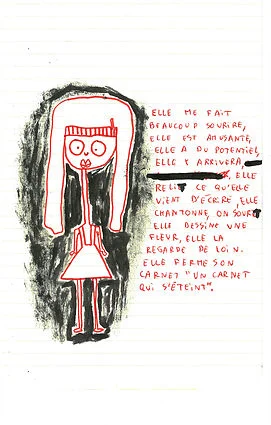 ELLE ME FAIT
BEAUCOUP SOURIRE,
ELLE EST AMUSANTE,
ELLE A DU POTENTIEL,
ELLE Y ARRIVERA,
ELLE
RELIT CE QU'ELLE
VIENT D'ÉCRIRE, ELLE
CHANTONNE, ON SOURIT
ELLE DESSINE UNE
FLEUR, ELLE LA
REGARDE DE LOIN.
ELLE FERME SON
CARNET "UN CARNET
QUI S'ÉTEINT".